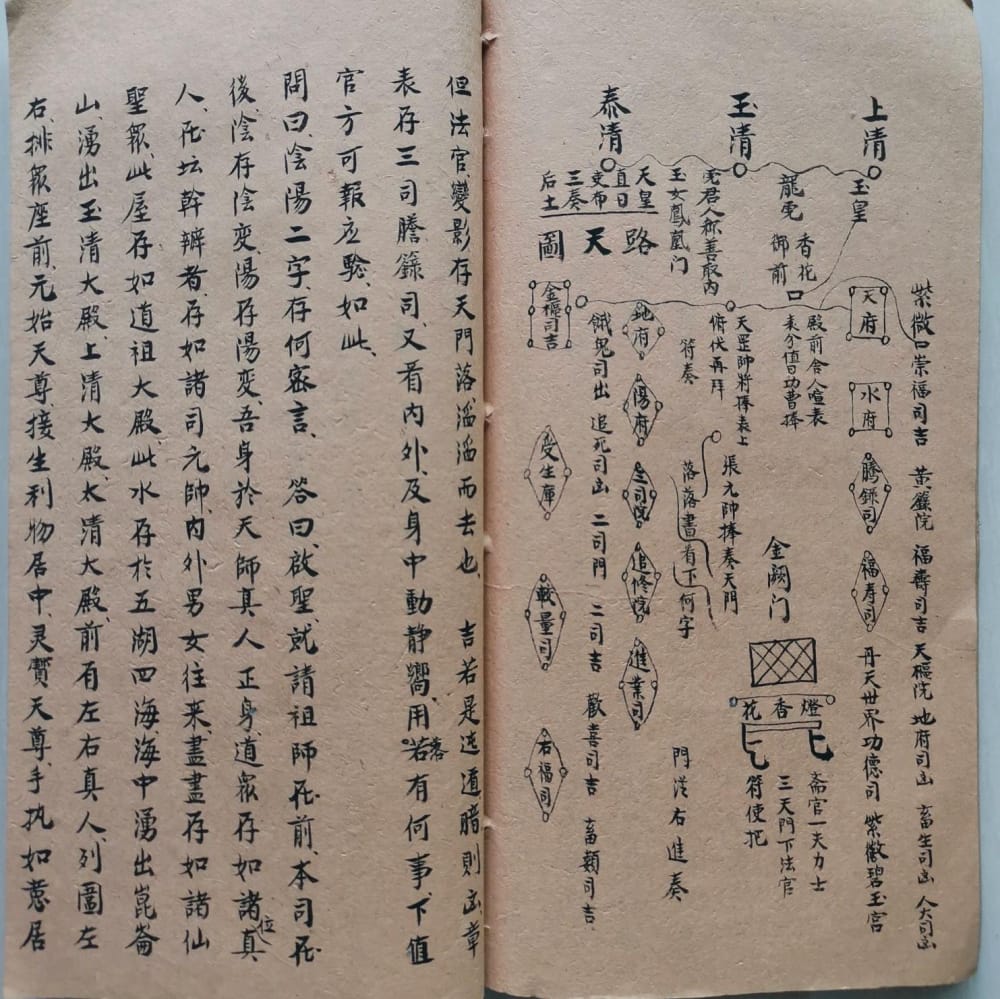 上清
玉清
泰清
玉皇
龍
香花
御前
玉女鳳凰门
天皇
直日
三奏
后土
路天圖
紫微
崇福司吉
黃籙院
福壽司吉
天樞院
地府司凶
畜生司凶
人大司凶
天府
水府
騰錄司
福寿司
丹天世界功德司
紫微碧玉宫
殿前舍人喧表
表分值日功曹捧
天罡帥將捧表上
俯伏再拜
符奏
金闕门
張元帥捧奏天門
落落書有下何字
花香燈
斋官一夫力士
三天門下法官
符使把
門從右進奏
地府
陽府
生司院
追修院
進業司
餓鬼司出
追死司凶
二司門
二司吉
歡喜司吉
畜類司吉
金樞司吉
受生庫
載量司
右福司
但法官變影存天門落滔滔而去也吉若是遠道暗則凶章
表存三司謄籙司又看内外及身中動静嚮用若落有何事下值
官方可報应驗如此
問曰陰陽二字存何密言答曰啟聖就請祖師在前本司在
後陰存陰变陽存陽变吾身於天師真人正身道眾存如諸真位
人在坛幹辦者存如諸司元帥内外男女往来盡盡存如諸仙
聖眾此屋存如道祖大殿此水存於五湖四海海中湧出崑崙
山湧出玉清大殿上清大殿太清大殿前有左右真人列圖左
右排眾座前元始天尊接生利物居中灵寶天尊手执如意居